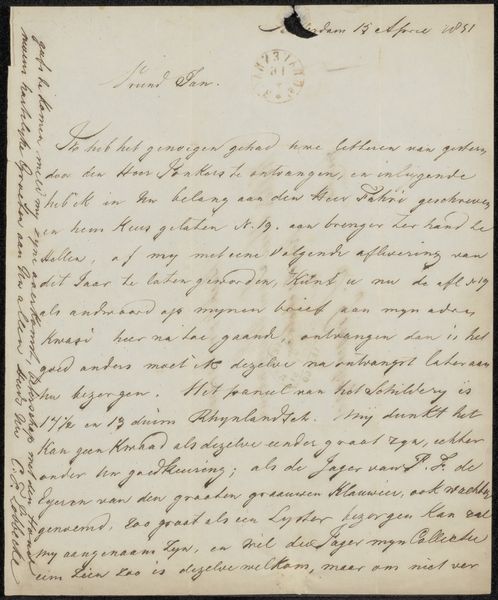 Rotterdam 15 April 1851
Vriend Jan.
Ik heb het genoegen gehad uwe letteren van gisteren
door den Heer Jonkers te ontvangen, en inliggende
heb ik in Uw belang aan den Heer geschreven
en hem Keus gelaten N. 19. aan brenger ter hand te
stellen, of my met eene volgende aflevering van
dit Jaar te laten geworden, Kunt u nu de afl. N 19
als andwoord op mynen brief aan myn adres
Kwasi hier na toe gaande, ontvangen dan is het
goed anders moet ik dezelve na ontvangst later aan
Uw bezorgen. Het paneel van het Schildery is
17½ en 13 duim Rhynlandsch. My dunkt het
Kan geen Kwaad als dezelve eender groot zyn, echter
onder Uw goedkeuring; als de Jager van P. F. de
Eyeren van den grooten graauwen Klauwier, ook wachter
genoemd, zoo groot als een Lyster bezorgen Kan zal
my aangenaam zyn, en wil die Jager myn Collectie
eens zien zoo is dezelve welkom, maar om niet ver
giefs te komen, meld my zyne aankomst,
myne hartelyke Groeten aan Uw allen